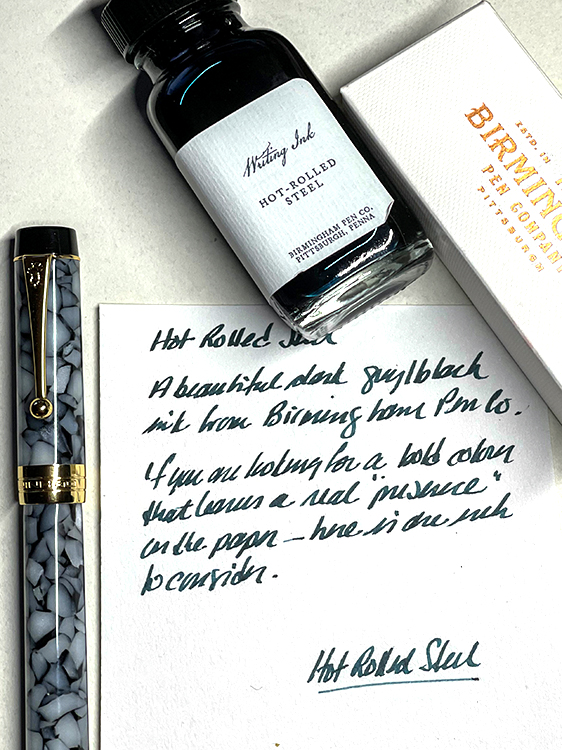 Writing Ink
HOT-ROLLED
STEEL
BIRMINGHAM PEN CO.
PITTSBURGH, PENNA
ESTD. IN
BIRMING
PEN COMPANY
PITTSBURGH
Hot Rolled Steel
A beautiful dark grey/black
ink from Birmingham Pen Co.
If you are looking for a bold colour
that leaves a real "presence"
on the paper – here is one such
to consider.
Hot Rolled Steel